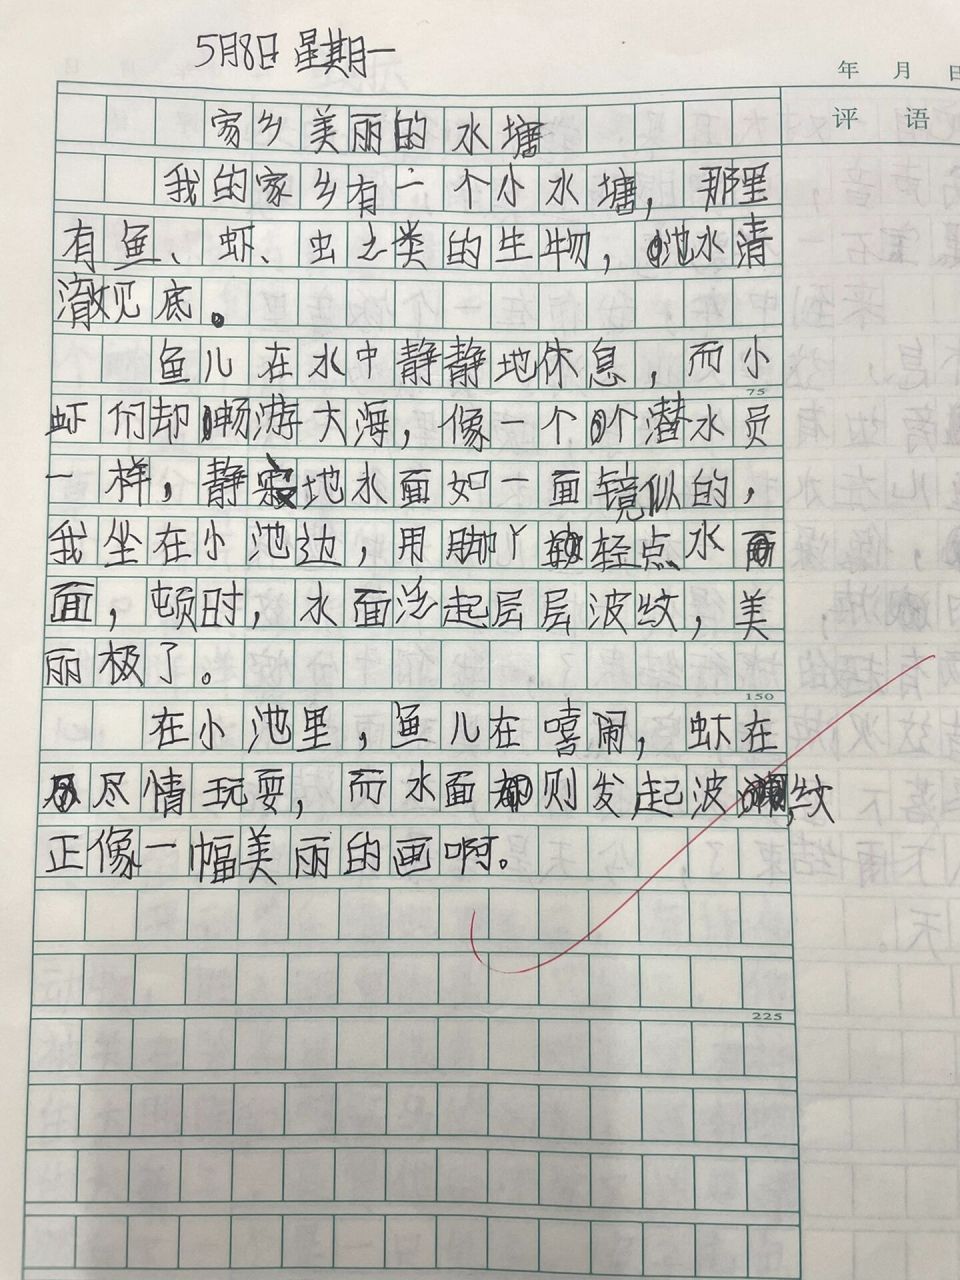 5月8日 星期一
年 月 日
评 语
家乡美丽的水塘
我的家乡有一个小水塘，那里
有鱼、虾、虫之类的生物，池水清
澈见底。
鱼儿在水中静静地休息，而小
75
虾们却畅游大海，像一个个潜水员
一样，静寂地水面如一面镜似的，
我坐在小池边，用脚丫轻点水
面，顿时，水面泛起层层波纹，美
丽极了。
150
在小池里，鱼儿在嘻闹，虾在
尽情玩耍，而水面则发起波纹
正像一幅美丽的画啊。
225